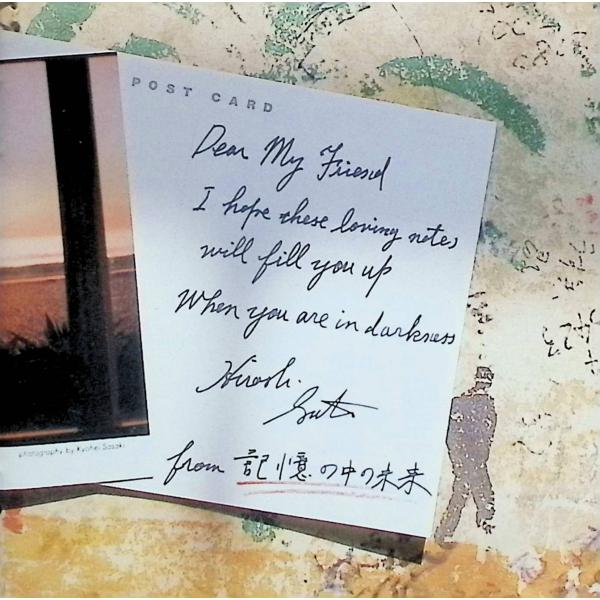 POST CARD
Dear My Friend
I hope these loving notes
will fill you up
When you are in darkness
Hiroshi
Sato
from 記憶の中の未来
photography by Kyohei Sasaki